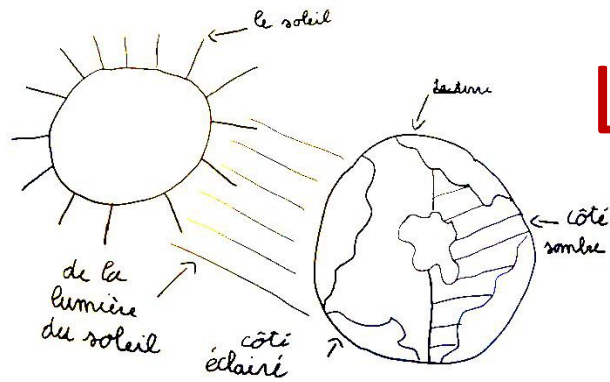 le soleil
La terre
L
côté
sombre
de la
lumière
du soleil
côté
éclairé